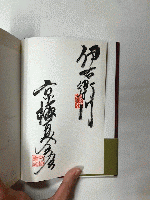 伊右衛門
京極夏彦